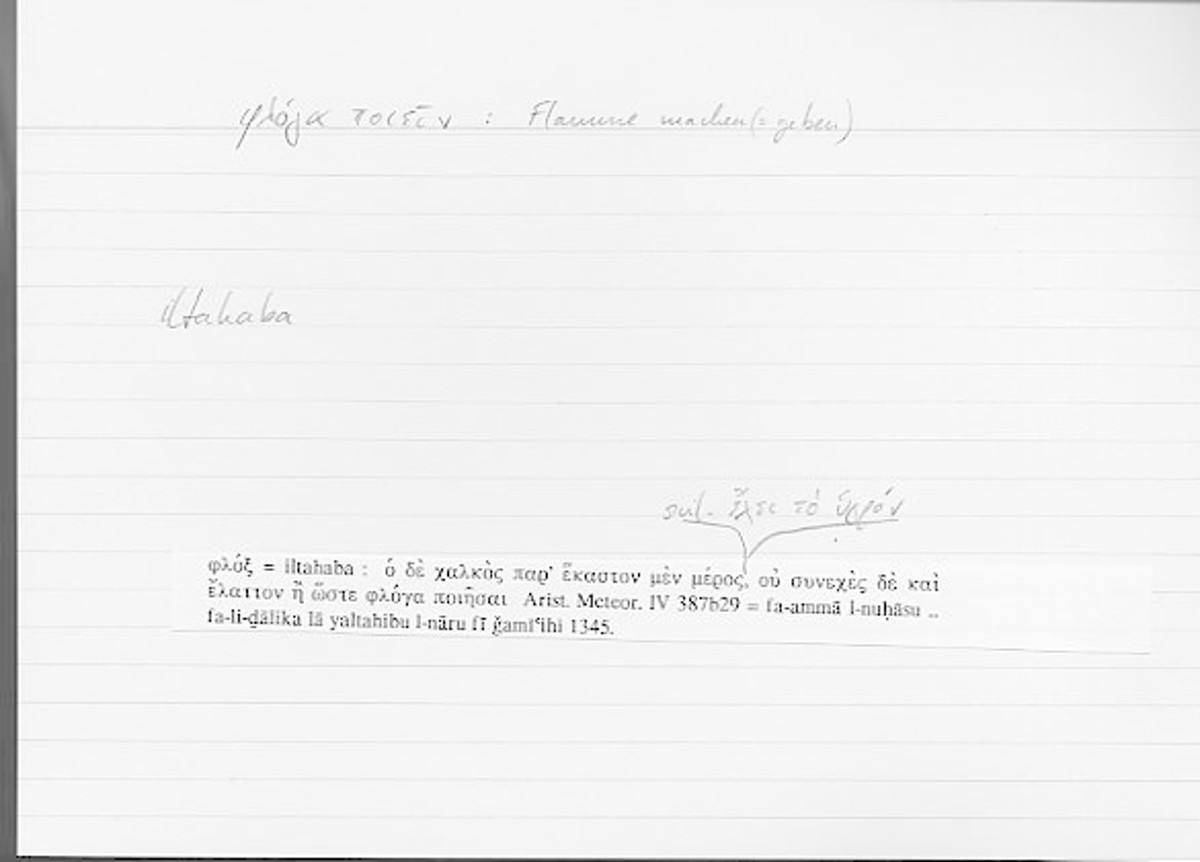 φλόγα ποιεῖν : Flamme machen (= geben)
iltahaba
scil. ἔχει τὸ ὑγρόν
φλόξ = iltahaba : ὁ δὲ χαλκὸς παρ' ἕκαστον μὲν μέρος, οὐ συνεχὲς δὲ καὶ
ἔλαττον ἢ ὥστε φλόγα ποιῆσαι Arist. Meteor. IV 387b29 = fa-ammā l-nuḥāsu ..
fa-li-ḏālika lā yaltahibu l-nāru fī ǧamīʿihi 1345.